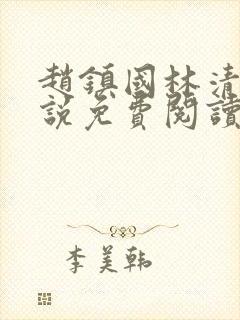 趙鎮國林清
說免費閱讀
李美韩